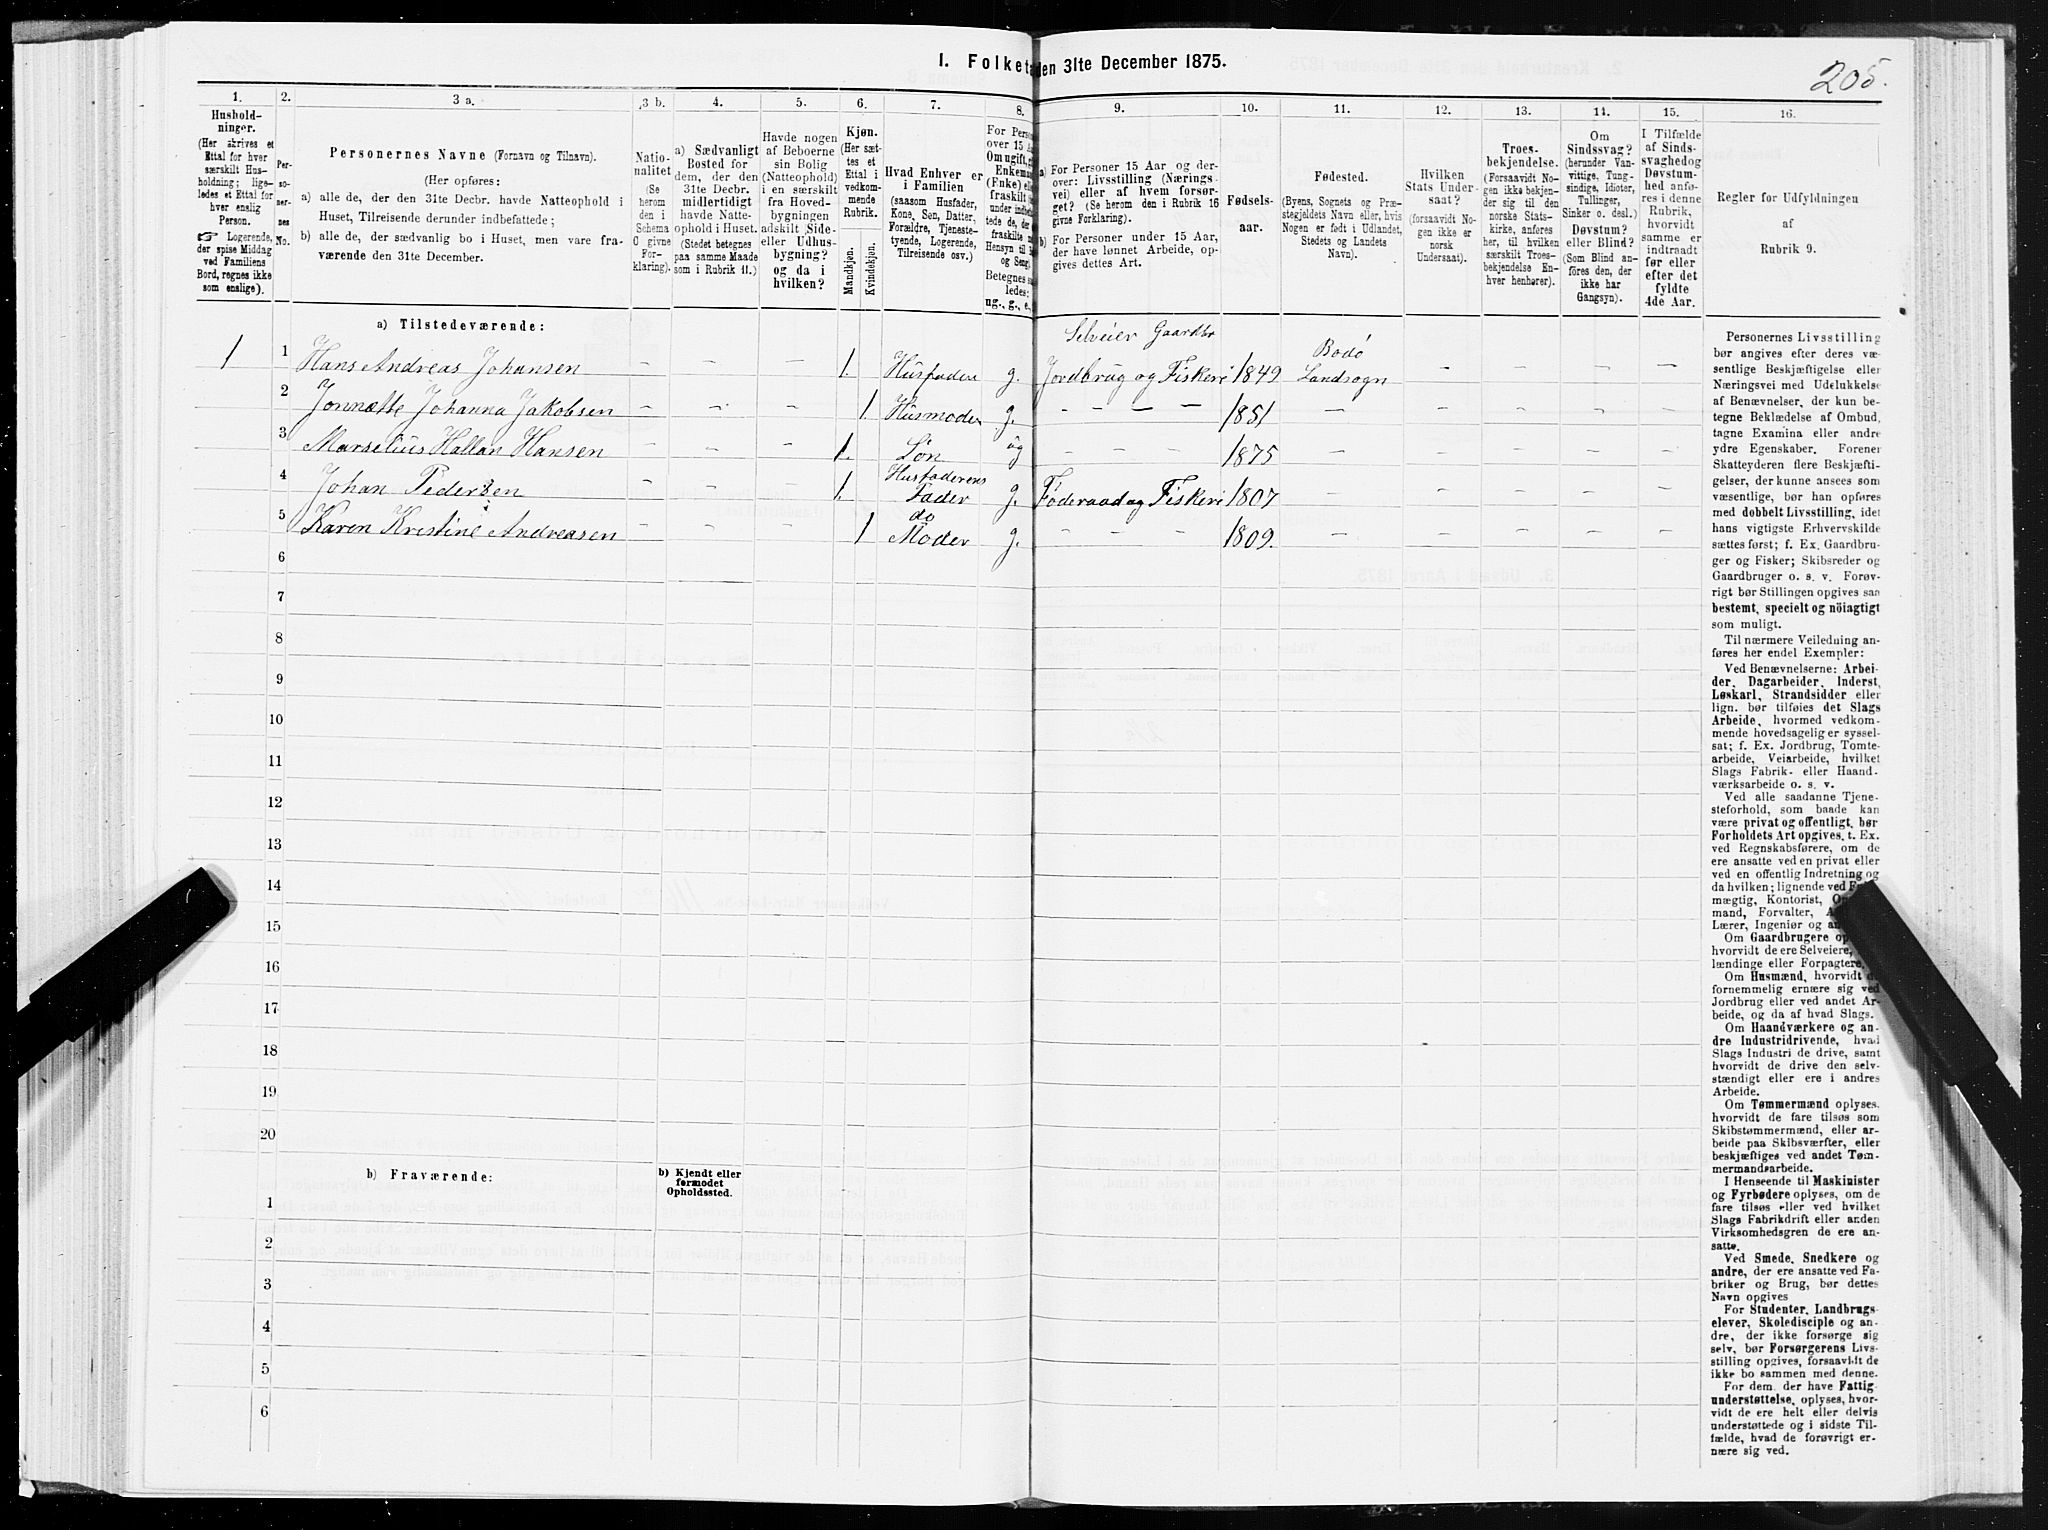 I. Folketæ
den 31te December 1875.
205.
1.
2.
3 a.
3 b.
4.
5.
6.
7.
8.
9.
10.
11.
12.
13.
14.
15.
16.
Hushold-
ninger.
(Her skrives et
Ettal for hver
særskilt Hus-
holdning; lige-
ledes et Ettal for
hver enslig
Person.
☞ Logerende,
der spise Middag
ved Familiens
Bord, regnes ikke
som enslige).
Per-
so-
ner-
nes
No.
Personernes Navne (Fornavn og Tilnavn).
(Her opføres:
a) alle de, der den 31te Decbr. havde Natteophold i
Huset, Tilreisende derunder indbefattede;
b) alle de, der sædvanlig bo i Huset, men vare fra-
værende den 31te December.
Natio-
nalitet
(Se
herom
den i
Schema
O givne
For-
klaring).
a) Sædvanligt
Bosted for
dem, der den
31te Decbr.
midlertidigt
havde Natte-
ophold i Huset.
(Stedet betegnes
paa samme Maade
som i Rubrik 11.)
Havde nogen
af Beboerne
sin Bolig
(Natteophold)
i en særskilt
fra Hoved-
bygningen
adskilt Side-
eller Udhus-
bygning?
og da i
hvilken?
Kjøn.
(Her sæt-
tes et
Ettal i
vedkom-
mende
Rubrik.
Mandkjøn.
Kvindekjøn.
Hvad Enhver er
i Familien
(saasom Husfader,
Kone, Søn, Datter,
Forældre, Tjeneste-
tyende, Logerende,
Tilreisende osv.)
For Perso
over 15 A
Om ugift, g
Enkema
(Enke) el
fraskilt
under indb
tede de, der
fraskilte
Hensyn til
og Seng.
Betegnes sa
ledes:
ug., g., e.,
a) For Personer 15 Aar og der-
over: Livsstilling (Nærings
vei) eller af hvem forsør-
get? (Se herom den i Rubrik 16
givne Forklaring).
b) For Personer under 15 Aar,
der have lønnet Arbeide, op-
gives dettes Art.
Fødsels-
aar.
Fødested.
(Byens, Sognets og Præ-
stegjeldets Navn eller, hvis
Nogen er født i Udlandet,
Stedets og Landets
Navn).
Hvilken
Stats Under-
saat?
(forsaavidt No-
gen ikke er
norsk
Undersaat).
Troes-
bekjendelse.
(Forsaavidt No-
gen ikke bekjen-
der sig til den
norske Stats-
kirke, anføres
her, til hvilken
særskilt Troes-
bekjendelse En-
hver henhører).
Om
Sindssvag?
(herunder Van-
vittige, Tung-
sindige, Idioter,
Tullinger,
Sinker o. desl.)
Døvstum?
eller Blind?
(Som Blind an-
føres den, der
ikke har
Gangsyn).
I Tilfælde
af Sinds-
svaghedog
Døvstum-
hed anfø-
res i denne
Rubrik,
hvorvidt
samme er
indtraadt
før eller
efter det
fyldte
4de Aar.
Regler for Udfyldningen
af
Rubrik 9.
a) Tilstedeværende:
Selveier Gaardbr
1
1 Hans Andreas Johansen – – – 1. Husfader g. Jordbrug og Fiskeri 1849 Bodø Landsogn – – – –
2 Jonnette Johanna Jakobsen – – – 1. Husmoder g. – – – – 1851 – – – – –
3 Marselius Hallan Hansen – – – 1. Søn ug – – – – 1875 – – – – –
4 Johan Pedersen – – – 1. Husfaderens Fader g. Føderaad og Fiskeri 1807 – – – – –
5 Karen Kristine Andreasen – – – 1 do Moder g. – – – 1809. – – – – –
6
7
8
9
10
11
12
13
14
15
16
17
18
19
20
b) Fraværende:
b) Kjendt eller
formodet
Opholdssted.
1
2
3
4
5
6
Personernes Livsstilling
bør angives efter deres væ-
sentlige Beskjæftigelse eller
Næringsvei med Udelukkelse
af Benævnelser, der kun be-
tegne Beklædelse af Ombud,
tagne Examina eller andre
ydre Egenskaber. Forener
Skatteyderen flere Beskjæfti-
gelser, der kunne ansees som
væsentlige, bør han opføres
med dobbelt Livsstilling, idet
hans vigtigste Erhvervskilde
sættes først; f. Ex. Gaardbru-
ger og Fisker; Skibsreder og
Gaardbruger o. s. v. Forøv-
rigt bør Stillingen opgives saa
bestemt, specielt og nöiagtigt
som muligt.
Til nærmere Veiledning an-
føres her endel Exempler:
Ved Benævnelserne: Arbei-
der, Dagarbeider, Inderst,
Løskarl, Strandsidder eller
lign. bør tilføies det Slags
Arbeide, hvormed vedkom-
mende hovedsagelig er syssel-
sat; f. Ex. Jordbrug, Tomte-
arbeide, Veiarbeide, hvilket
Slags Fabrik- eller Haand-
værksarbeide o. s. v.
Ved alle saadanne Tjene-
steforhold, som baade kan
være privat og offentligt, bør
Forholdets Art opgives, t. Ex.
ved Regnskabsførere, om de
ere ansatte ved en privat eller
ved en offentlig Indretning og
da hvilken; lignende ved
mægtig, Kontorist,
mand, Forvalter,
Lærer, Ingeniør og
Om Gaardbrugere
hvorvidt de ere Selveiere,
lændinge eller Forpagtere.
Om Husmænd, hvorvidt
fornemmelig ernære sig ved
Jordbrug eller ved andet Ar-
beide, og da af hvad Slags.
Om Haandværkere og an-
dre Industridrivende, hvad
Slags Industri de drive, samt
hvorvidt de drive den selv-
stændigt eller ere i andres
Arbeide.
Om Tømmermænd oplyses,
hvorvidt de fare tilsøs som
Skibstømmermænd, eller ar-
beide paa Skibsværfter, eller
beskjæftiges ved andet Tøm-
mermandsarbeide.
I Henseende til Maskinister
og Fyrbødere oplyses, om de
fare tilsøs eller ved hvilket
Slags Fabrikdrift eller anden
Virksomhedsgren de ere an-
satte.
Ved Smede, Snedkere og
andre, der ere ansatte ved Fa-
briker og Brug, bør dettes
Navn opgives
For Studenter, Landbrugs-
elever, Skoledisciple og an-
dre, der ikke forsørge sig
selv, bør Forsørgerens Livs-
stilling opgives, forsaavidt de
ikke bo sammen med denne.
For dem, der have Fattig-
understøttelse, oplyses, hvor-
vidt de ere helt eller delvis
understøttede og i sidste Til-
fælde, hvad de forøvrigt er-
nære sig ved.